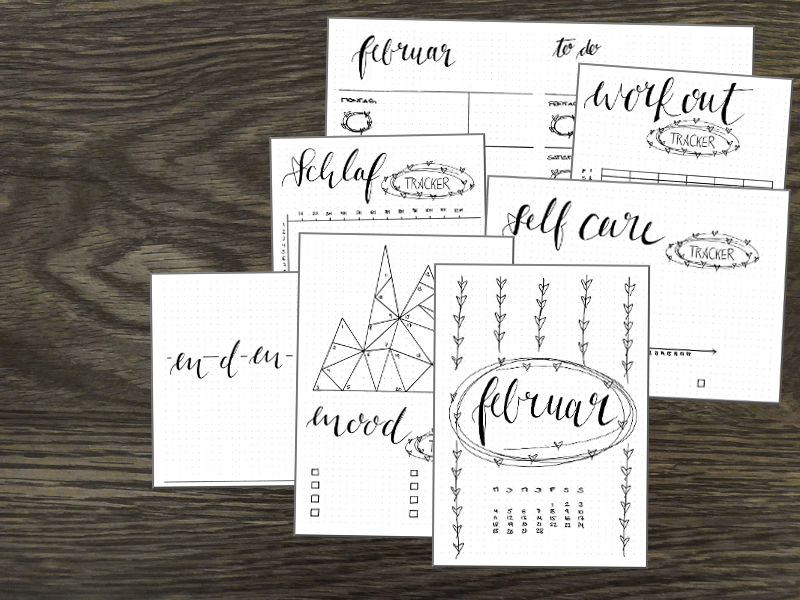 februar
to do
MONTAG:
work out
TRACKER
Schlaf
TRACKER
self care
TRACKER
-en-d-en-
mood
februar
M D M D F S S
1 2 3
4 5 6 7 8 9 10
11 12 13 14 15 16 17
18 19 20 21 22 23 24
25 26 27 28